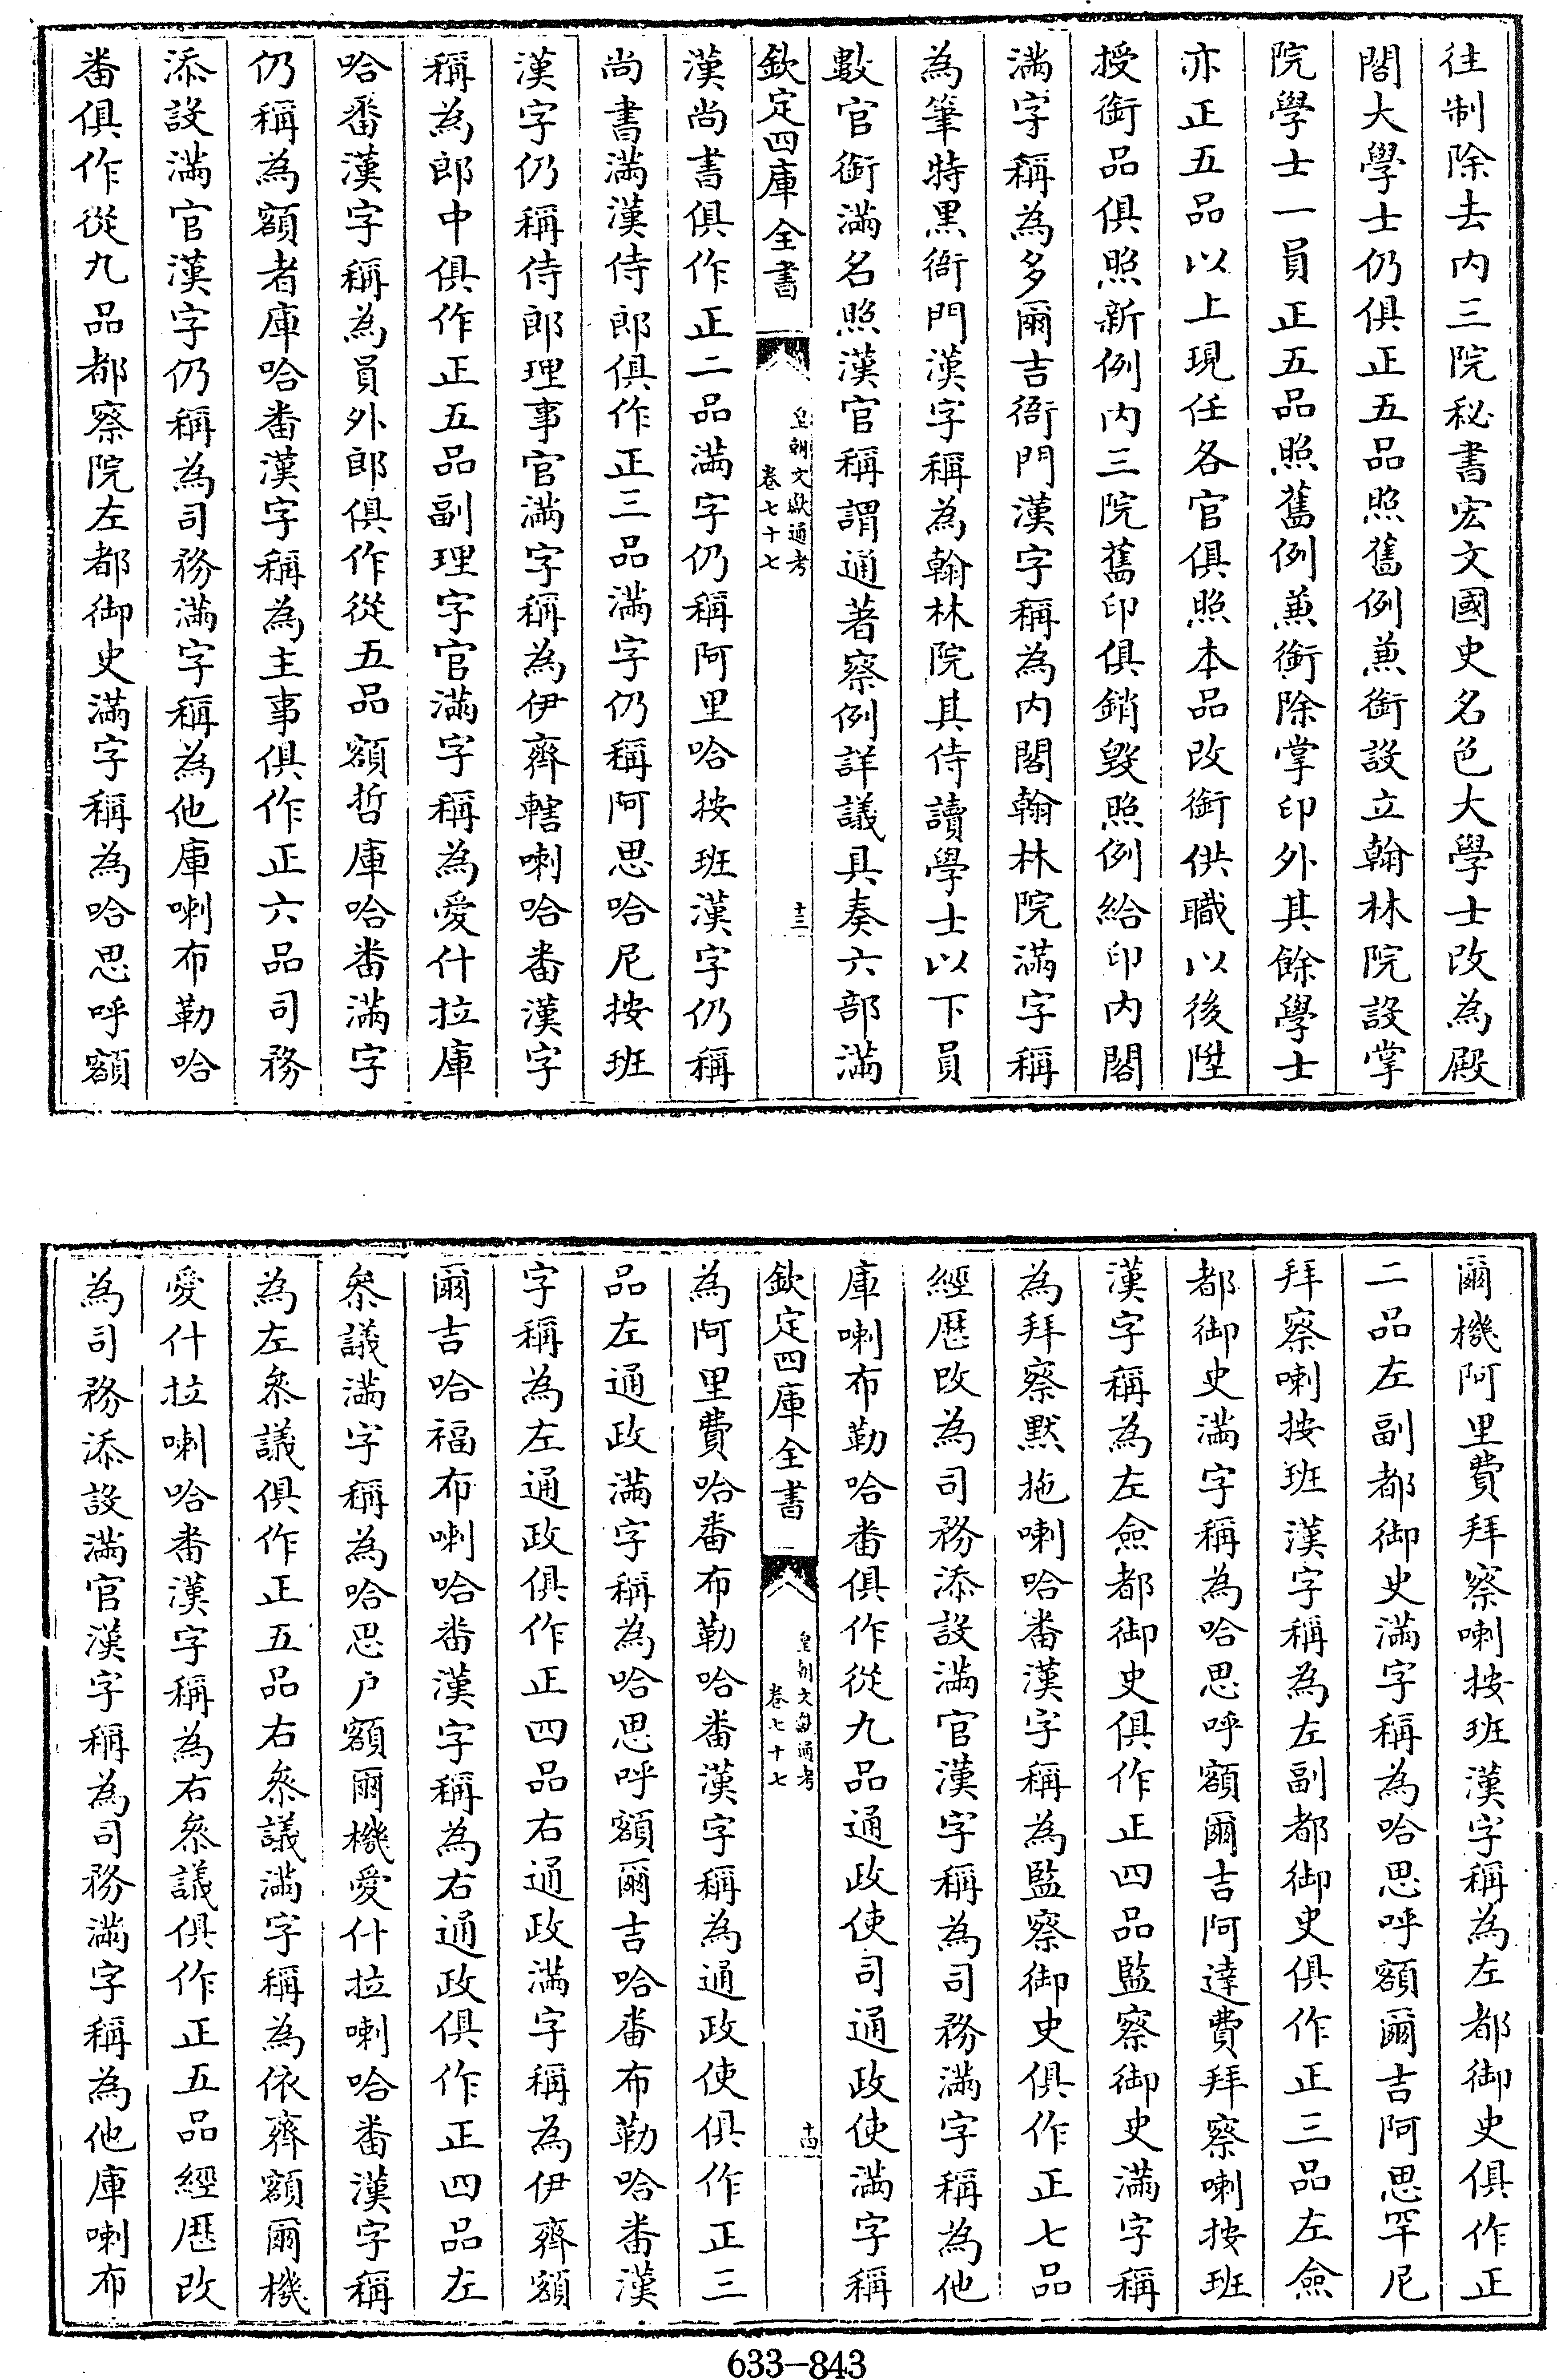 往制除去内三院秘書宏文國史名色大學士改為殿
閣大學士仍俱正五品照舊例兼銜設立翰林院設掌
院學士一員正五品照舊例兼銜除掌印外其餘學士
亦正五品以上現任各官俱照本品改銜供職以後陞
授銜品俱照新例内三院舊印俱銷毀照例給印内閣
滿字稱為多爾吉衙門漢字稱為内閣翰林院滿字稱
為筆特黑衙門漢字稱為翰林院其侍讀學士以下員
數官銜滿名照漢官稱謂通著察例詳議具奏六部滿
欽定四庫全書
皇朝文獻通考
卷七十七
十三
漢尚書俱作正二品滿字仍稱阿里哈按班漢字仍稱
尚書滿漢侍郎俱作正三品滿字仍稱阿思哈尼按班
漢字仍稱侍郎理事官滿字稱為伊齊轄喇哈番漢字
稱為郎中俱作正五品副理字官滿字稱為愛什拉庫
哈番漢字稱為員外郎俱作從五品額哲庫哈番滿字
仍稱為額者庫哈番漢字稱為主事俱作正六品司務
添設滿官漢字仍稱為司務滿字稱為他庫喇布勒哈
番俱作從九品都察院左都御史滿字稱為哈思呼額
爾機阿里費拜察喇按班漢字稱為左都御史俱作正
二品左副都御史滿字稱為哈思呼額爾吉阿思罕尼
拜察喇按班漢字稱為左副都御史俱作正三品左僉
都御史滿字稱為哈思呼額爾吉阿達費拜察喇按班
漢字稱為左僉都御史俱作正四品監察御史滿字稱
為拜察黙拖喇哈番漢字稱為監察御史俱作正七品
經歴改為司務添設滿官漢字稱為司務滿字稱為他
庫喇布勒哈番俱作從九品通政使司通政使滿字稱
欽定四庫全書
皇朝文獻通考
卷七十七
十四
為阿里費哈番布勒哈番漢字稱為通政使俱作正三
品左通政滿字稱為哈思呼額爾吉哈番布勒哈番漢
字稱為左通政俱作正四品右通政滿字稱為伊齊額
爾吉哈福布喇哈番漢字稱為右通政俱作正四品左
叅議滿字稱為哈思户額爾機愛什拉喇哈番漢字稱
為左叅議俱作正五品右叅議滿字稱為依齊額爾機
愛什拉喇哈番漢字稱為右叅議俱作正五品經歴改
為司務添設滿官漢字稱為司務滿字稱為他庫喇布
633-843